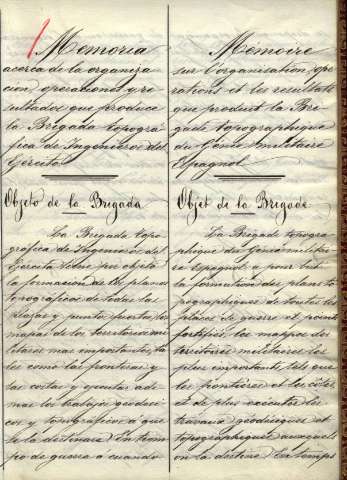 Memoria
acerca de la organiza
cion, operaciones y re
sultados que produce
la Brigada topográ
fica de Ingenieros del
Ejército
Objeto de la Brigada
La Brigada topo
gráfica de Ingenieros del
Ejército tiene por objeto
la formacion de los planos
topográficos de todas las
plazas y puntos fuertes, los
mapas de los territorios mi
litares mas importantes, ta
les como las fronteras y
las costas y ejecutar ade
mas los trabajos geodési
cos y topográficos á que
se la destinara. En tiem
po de guerra ó cuando
Mémoire
sur l'organisation, opé
rations et les resultats
que produit la Bri
gade topographique
du Génie militaire
Espagnol
Objet de la Brigade
La Brigade topogra
phique du Génie militai
re Espagnol a pour but
la formation des plans to
pographiques de toutes les
places de guerre et points
fortifiés, les mappes des
territoires militaires les
plus importants tels que
les frontières et les côtes
et de plus exécuter les
travaux géodesiques et
topographiques auxquels
on la destine. En temps